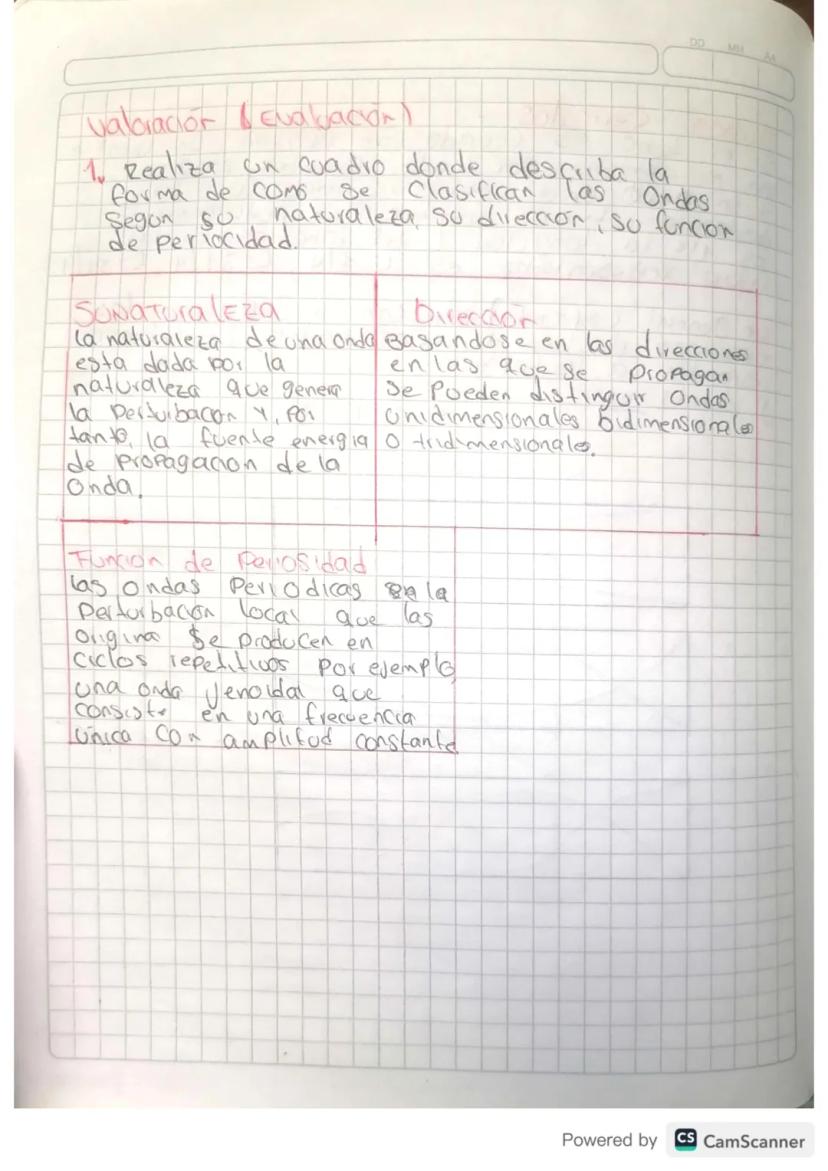 DD MM AA
Valoración (Evaluación)
1. Realiza un cuadro donde describa la
forma de como se Clasifican las Ondas
Segun su naturaleza, su dirección, su función
de periocidad.
Su NATURALEZA
La naturaleza de una onda
esta dada por la
naturaleza que genera
la Perturbacion Y, Por
tanto, la fuente energia
de propagacion de la
Onda.
Dirección
Basandose en las direcciones
en las que se Propagan
Se Pueden distinguir Ondas
Unidimensionales bidimensionales
O tridimensionales.
Función de Periosidad
las Ondas Periodicas la
Perturbación local que las
Origina Se producen en
Ciclos repetitivos por ejemplo
una onda Senoidal que
consiste en una frecuencia
única con amplitud constante
Powered by CS CamScanner